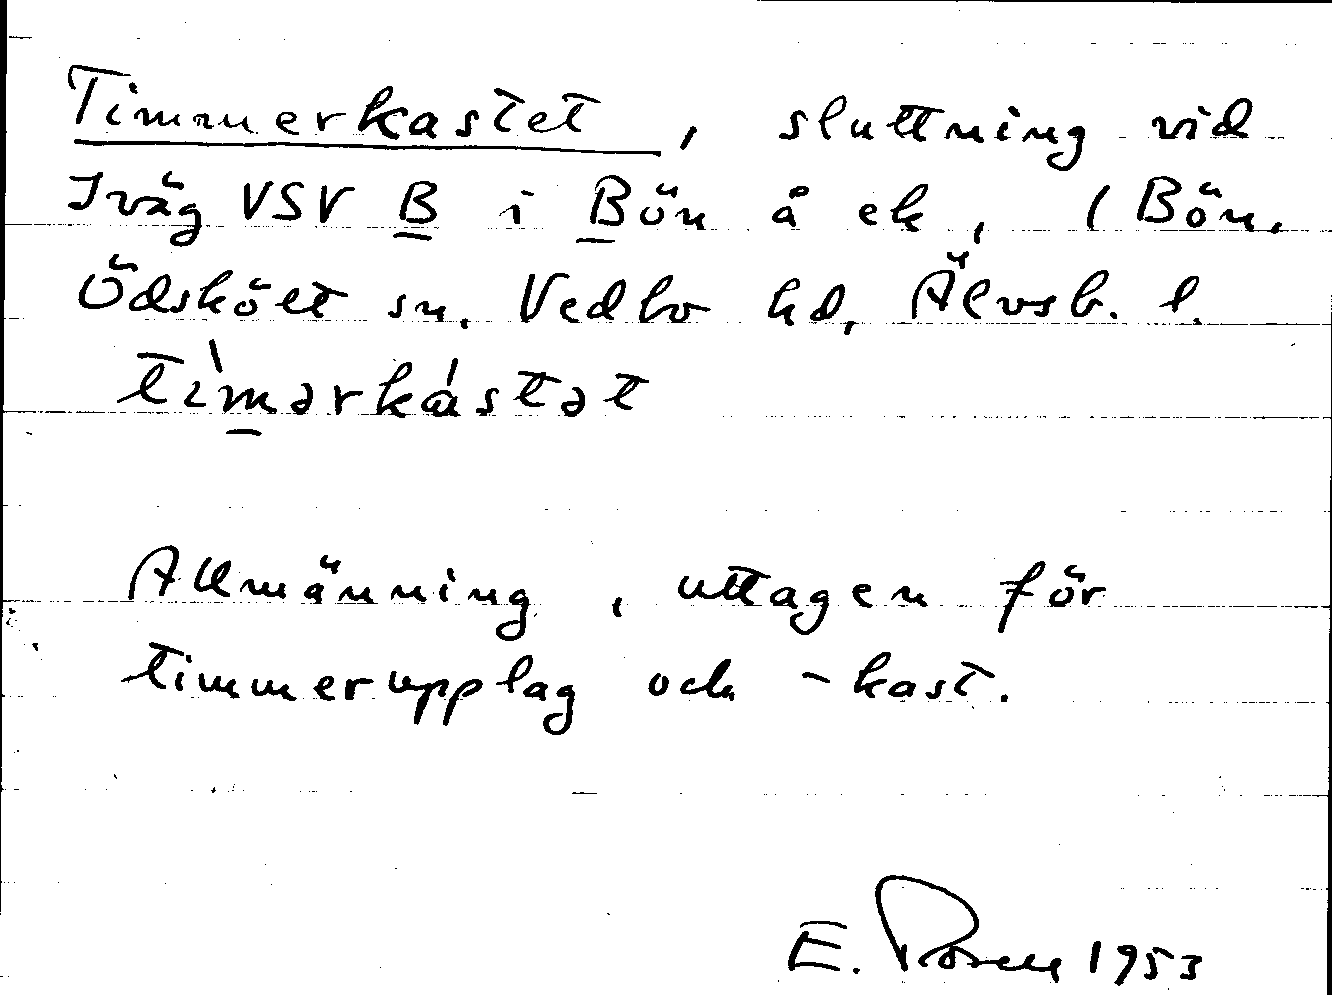 Timmerkastet, sluttning vid
Iväg VSV B i Bön å ek, (Bön,
Ödskölt sn. Vedbo hd, Älvsb. l.
tìmərkástət
Allmänning, uttagen för
timmerupplag och -kast.
E. 1953